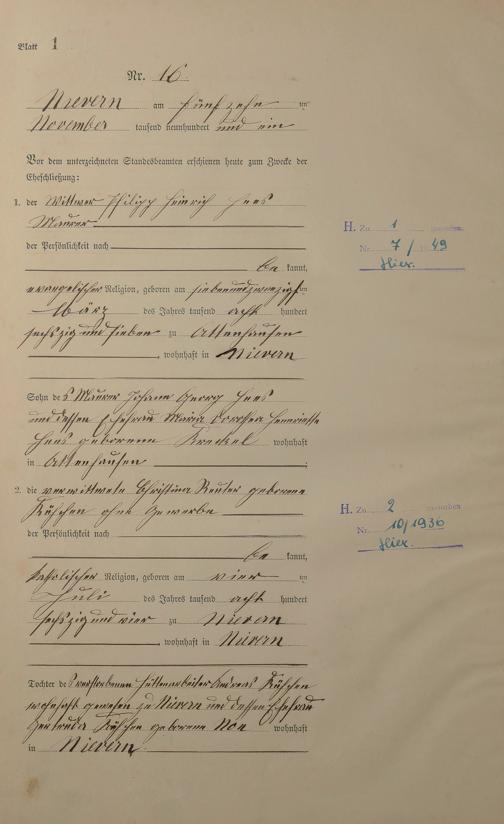 Blatt 1
Nr. 16.
Nievern am fünfzehn ten
November tausend neunhundert und ein
Vor dem unterzeichneten Standesbeamten erschienen heute zum Zwecke der
Eheschließung:
1. der Wittwer Philipp Heinrich Hees
Maurer
der Persönlichkeit nach
be kannt,
evangelischer Religion, geboren am siebenundzwanzigsten
März des Jahres tausend acht hundert
sechszig und sieben zu Attenhausen
, wohnhaft in Nievern
Sohn des Maurer Johann Georg Hees
und dessen Ehefrau Maria Dorothea Henriette
Hees geborenne Kreckel wohnhaft
in Attenhausen
2. die verwittwete Christina Reuter geborene
Küschen ohne Gewerbe
der Persönlichkeit nach
be kannt,
katholischer Religion, geboren am vier ten
Juli des Jahres tausend acht hundert
sechszig und vier zu Nievern
, wohnhaft in Nievern
Tochter des verstorbenen Hüttenarbeiter Andreas Küschen
wohnhaft gewesen zu Nievern und dessen Ehefrau
Gertruda Küschen geborene Noe wohnhaft
in Nievern
H. Zu 1
Nr. 7/49
Hier.
H. Zu 2
Nr. 10/1936
Hier.